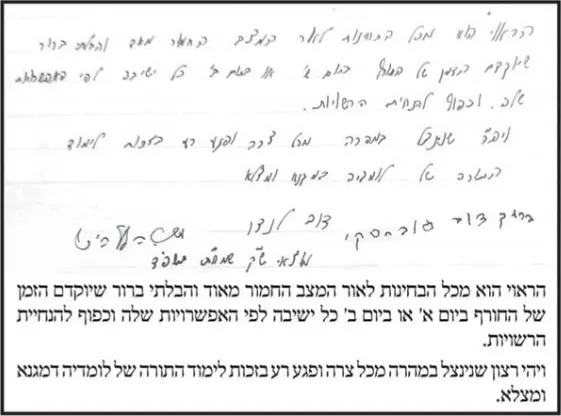 הראוי הוא מכל הבחינות לאור המצב החמור מאוד והבלתי ברור
שיוקדם הזמן של החורף ביום א' או ביום ב' כל ישיבה לפי האפשרויות
שלה. וכפוף להנחית הרשויות.
ויה"ר שננצל במהרה מכל צרה ופגע רע בזכות לימוד
התורה של לומדיה במגנא ומצלא
ברוך דוב פוברסקי דוב לנדו
מוצאי ש"ק שמח"ת תשפ"ד
הראוי הוא מכל הבחינות לאור המצב החמור מאוד והבלתי ברור שיוקדם הזמן
של החורף ביום א' או ביום ב' כל ישיבה לפי האפשרויות שלה וכפוף להנחיית
הרשויות.
ויהי רצון שנינצל במהרה מכל צרה ופגע רע בזכות לימוד התורה של לומדיה דמגנא
ומצלא.